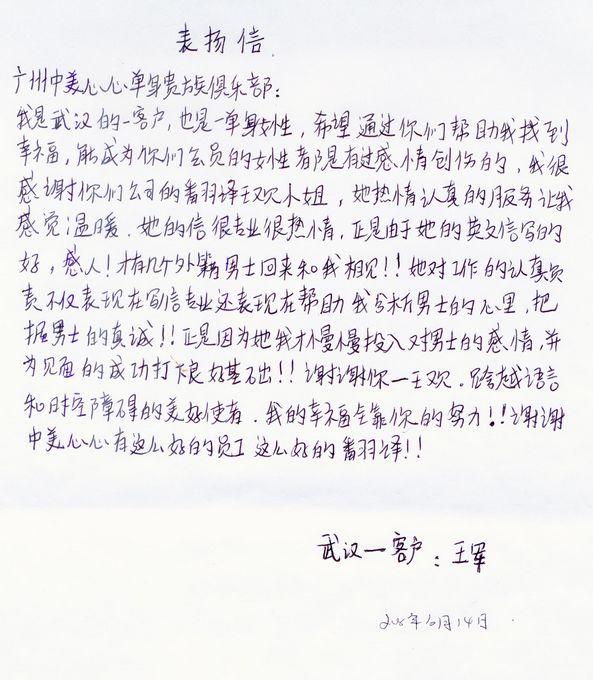 表扬信
广州中美心心单身贵族俱乐部：
我是武汉的一客户，也是一单身女性，希望通过你们帮助我找到
幸福，能成为你们会员的女性都是有过感情创伤的，我很
感谢你们公司的翻译王欢小姐，她热情认真的服务让我
感觉温暖．她的信很专业很热情．正是由于她的英文信写的
好，感人！才有几个外籍男士回来和我相见！！她对工作的认真负
责不仅表现在写信专业还表现在帮助我分析男士的心里，把
握男士的真诚！！正是因为她我才慢慢投入对男士的感情，并
为见面的成功打下良好基础！！谢谢你一王欢．跨越语言
和时空障碍的美好使者．我的幸福全靠你的努力！！谢谢
中美心心有这么好的员工 这么好的翻译！！
武汉一客户：王军
年 月14日